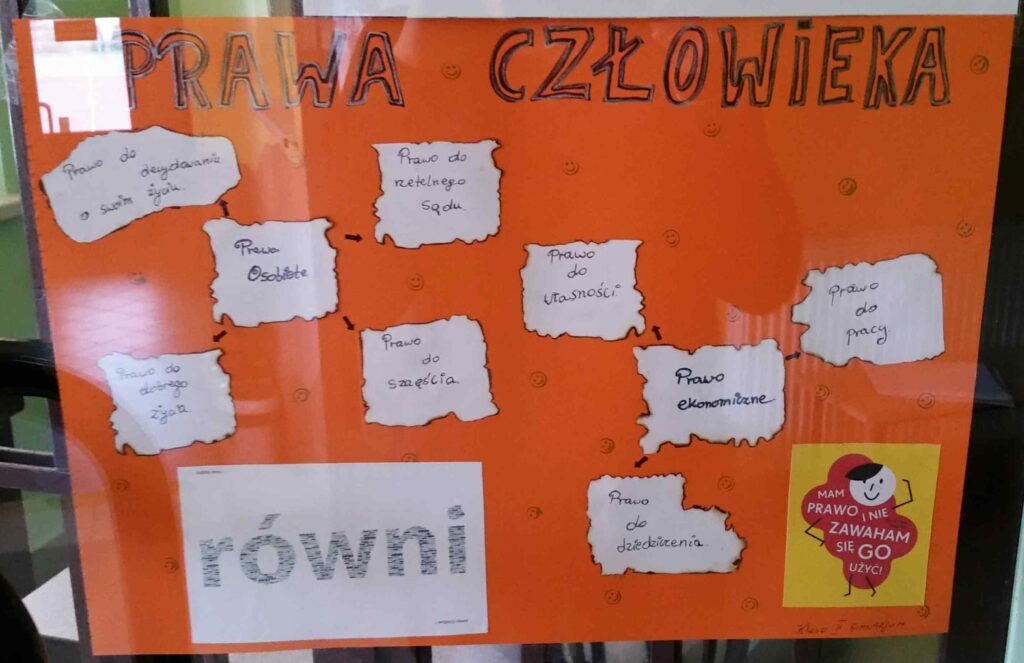 PRAWA CZŁOWIEKA
Prawo do
decydowania
o swoim życiu.
Prawo do
rzetelnego
sądu.
Prawa
Osobiste
Prawo do
dobrego
życia.
Prawo
do
szczęścia.
Prawo
do
własności.
Prawo
do
pracy.
Prawo
ekonomiczne
Prawo
do
dziedziczenia.
równi
MAM
PRAWO I NIE
ZAWAHAM
SIĘ GO
UŻYĆ!
Klasa II Gimnazjum